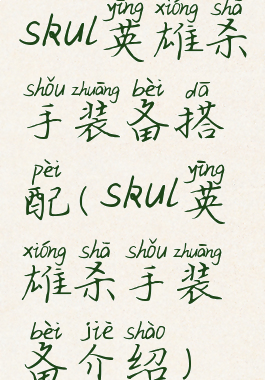 yīng xióng shā
skul英雄杀
shǒu zhuāng bèi dā
手装备搭
pèi yīng
配(skul英
xióng shā shǒu zhuāng
雄杀手装
bèi jiè shào
备介绍)